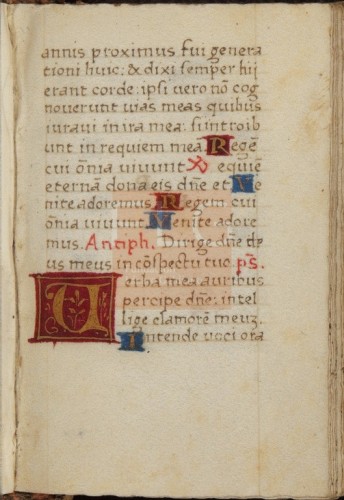 annis proximus fui genera
tioni huic: & dixi semper hij
errant corde: ipsi vero nõ cog
noverunt vias meas quibus
iuravi in ira mea: si introib
unt in requiem mea. Regẽ
cui õnia vivunt equiẽ
eternã dona eis dñe et Ve
nite adoremus. Regem cui
õnia vivunt Venite adore
mus. Antiph. Dirige dñe
us meus in cõspectu tuo. ps.
Verba mea auribus
percipe dñe: intel
lige clamorẽ meuz.
Intende voci ora